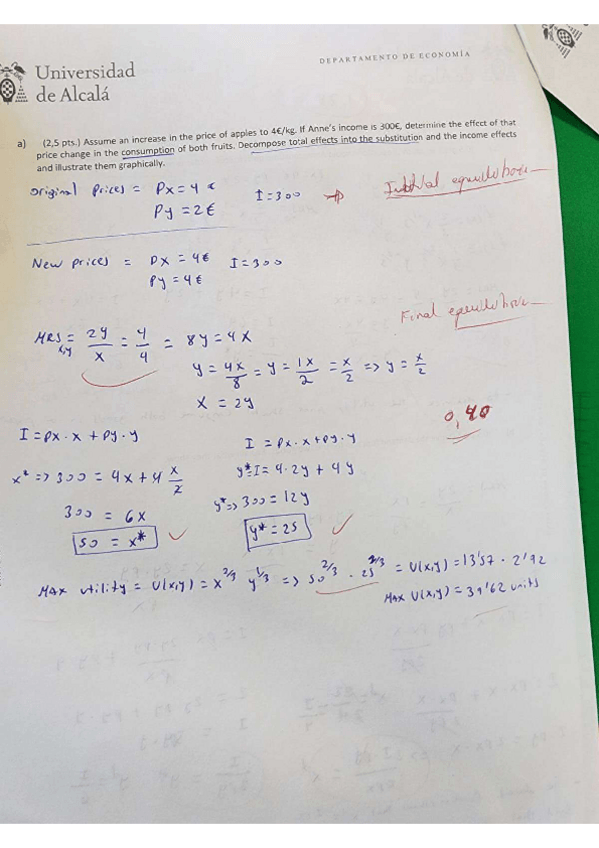 DEPARTAMENTO DE ECONOMÍA
Universidad
de Alcalá
a) (2,5 pts.) Assume an increase in the price of apples to 4€/kg. If Anne's income is 300€, determine the effect of that
price change in the consumption of both fruits. Decompose total effects into the substitution and the income effects
and illustrate them graphically.
Original Prices = Px = 4 € I = 300
Py = 2 €
New prices = Px = 4€ I = 300
Py = 4€
Final
MRS x,y = 2y/x = 4/4 = 8y = 4x
y = 4x/8 = y = 1x/2 = x/2 => y = x/2
x = 2y
0,40
I = px · x + py · y
I = px · x + py · y
x* => 300 = 4x + 4 x/2
y* = I = 4 · 2y + 4y
300 = 6x
y* => 300 = 12y
50 = x*
y* = 25
Max utility = U(x,y) = x^2/3 y^1/3 => 50^2/3 · 25^2/3 = U(x,y) = 13'57 · 2'92
Max U(x,y) = 39'62 units